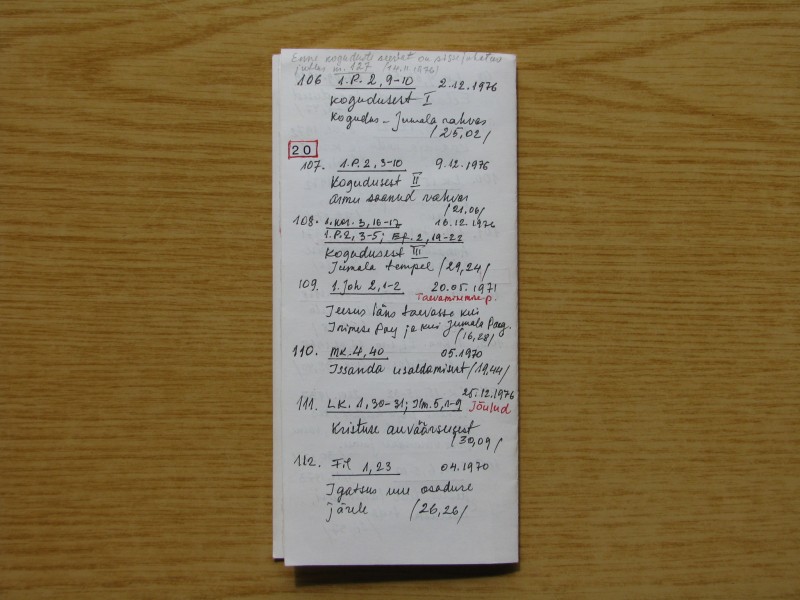 Enne koguduse
juures m. 127 (14.11.1976)
106 1.P. 2, 9-10 2.12.1976
Kogudusest I
Kogudus - Jumala rahvas
/25,02/
20
107. 1.P. 2, 3-10 9.12.1976
Kogudusest II
Armu saanud rahvas
/21,06/
108. 1.Kor. 3, 16-17 16.12.1976
1.P.2, 3-5; Ef. 2, 19-22
Kogudusest III
Jumala tempel /29,24/
109. 1.Joh 2, 1-2 20.05.1971
Taevaminemise p.
Jeesus läks taevasse kui
Inimese Poeg ja kui Jumala Poeg.
/16,28/
110. Mk. 4, 40 05.1970
Issanda usaldamisest /19,44/
25.12.1976
111. LK. 1, 30-31; Ilm. 5, 1-9 Jõulud
Kristuse auväärsusest
/30,09/
112. Fil 1, 23 04.1970
Igatsus uue osaduse
järele /26,26/